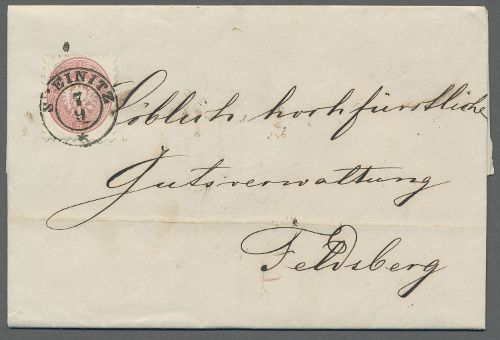 STEINITZ
7
9
Löblich hochfürstliche
Gutsverwaltung
Feldsberg